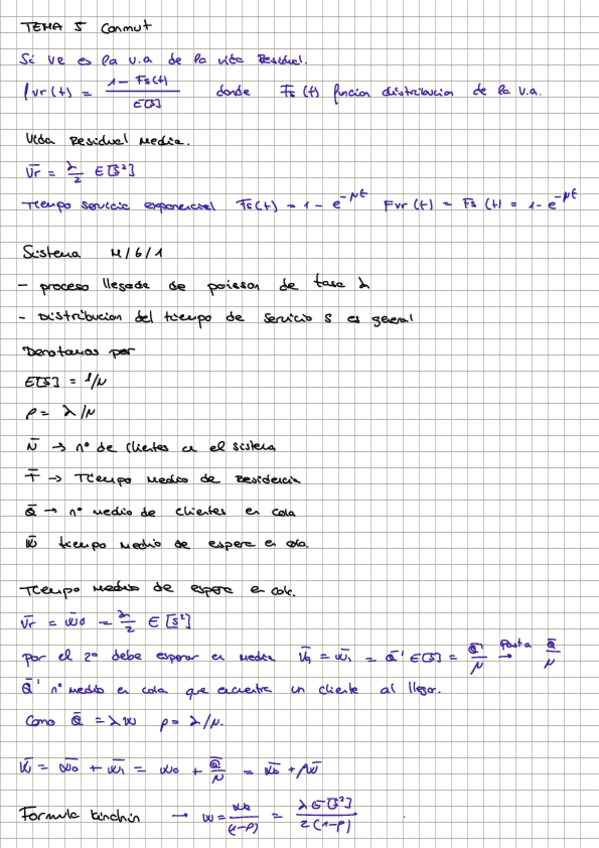 TEMA 5 Conmut
Si Vr es la v.a de la vida Residual.
fvr(t) = (1 - Fs(t)) / E[S] donde Fs(t) funcion distribucion de la v.a.
Vida Residual Media.
V̄r = λ/2 E[S²]
Tiempo servicio exponencial Fs(t) = 1 - e^-μt Fvr(t) = Fs(t) = 1 - e^-μt
Sistema M/G/1
- proceso llegada de poisson de tasa λ
- Distribucion del tiempo de servicio S es general
Denotamos por
E[S] = 1/μ
ρ = λ/μ
N̄ → nº de clientes en el sistema
T̄ → Tiempo medio de residencia
Q̄ → nº medio de clientes en cola
W̄ tiempo medio de espera en cola.
Tiempo medio de espera en cola.
V̄r = W̄0 = λ/2 E[S²]
por el 2º debe esperar en media V̄q = W̄1 = Q̄' E[S] = Q̄'/μ → Pasta Q̄/μ
Q̄' nº medio en cola que encuentra un cliente al llegar.
Como Q̄ = λW ρ = λ/μ.
W̄ = W̄0 + W̄1 = W0 + Q̄/μ = W̄0 + ρW̄
Formula kinchin → W = W0/(1-ρ) = λE[S²]/2(1-ρ)